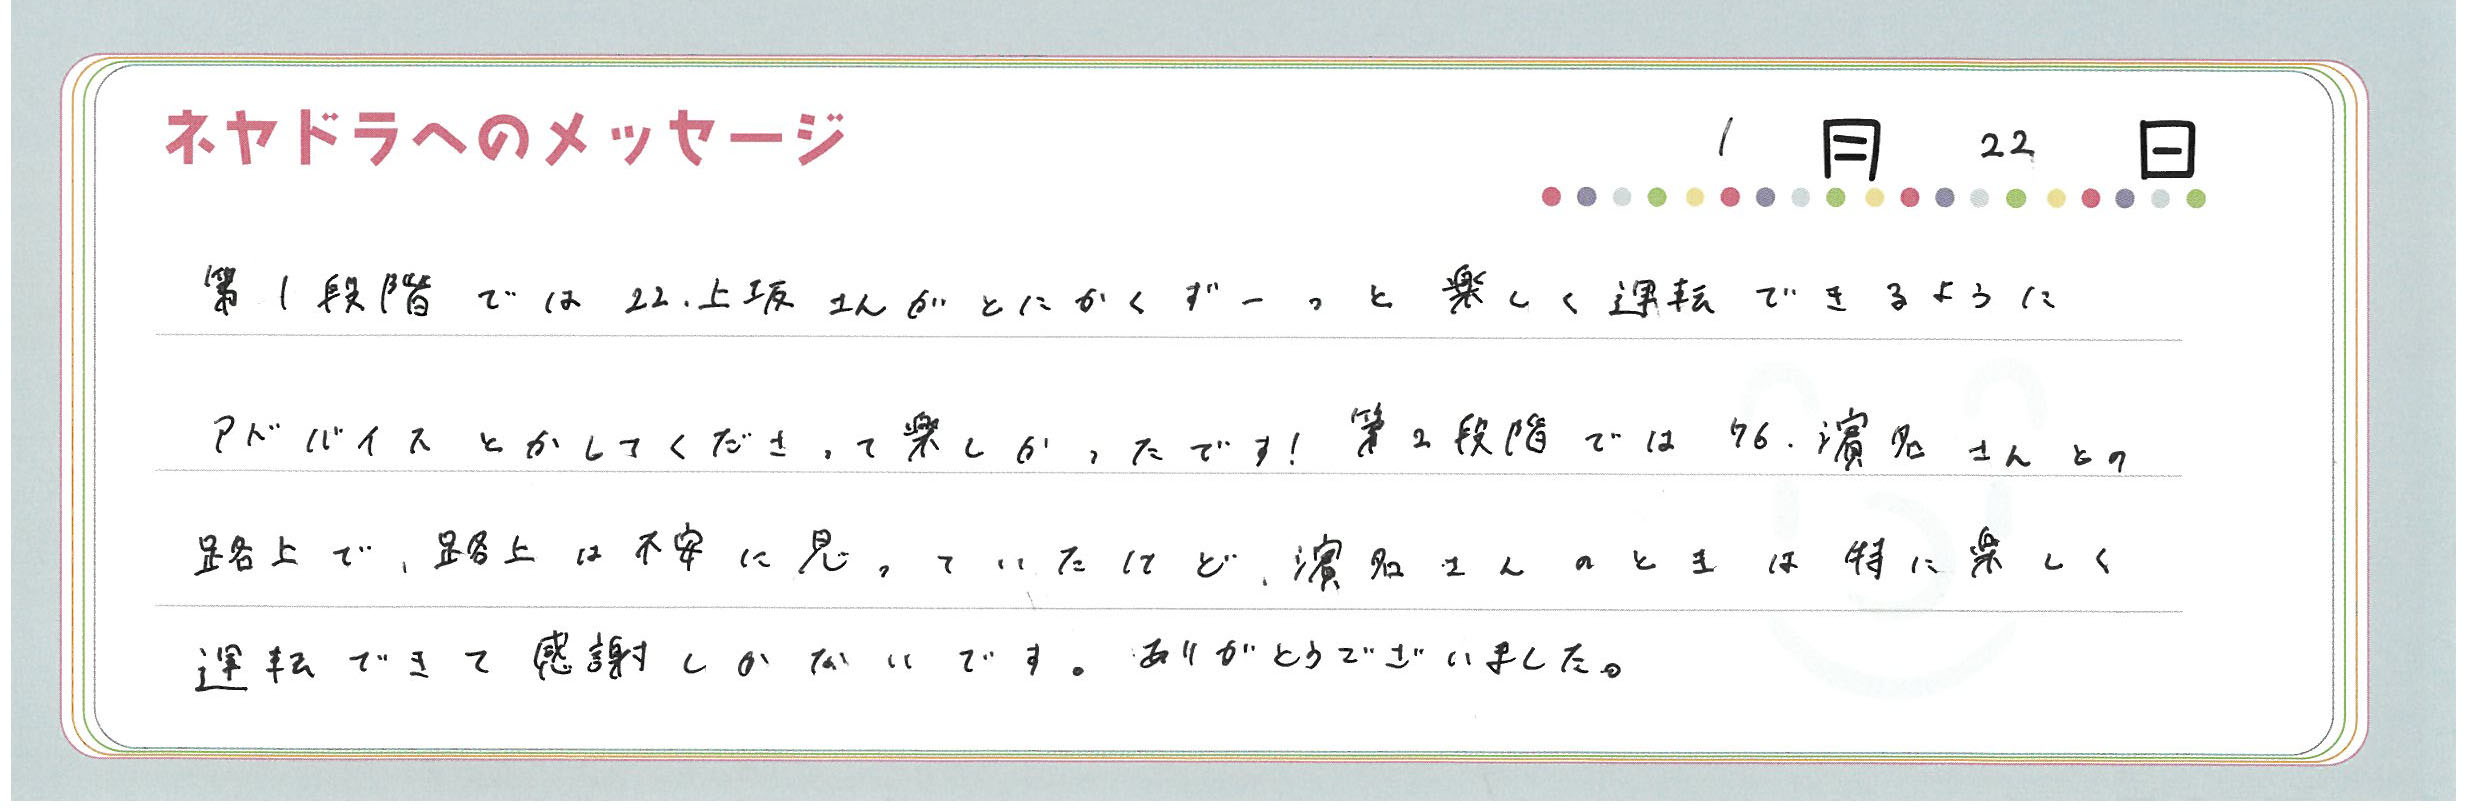 ネヤドラへのメッセージ
1月22日
第1段階では22.上坂さんがとにかくずーっと楽しく運転できるように
アドバイスとかしてくださって楽しかったです!第2段階では76.濱名さんとの
路上で、路上は不安に思っていたけど、濱名さんのときは特に楽しく
運転できて感謝しかないです。ありがとうございました。